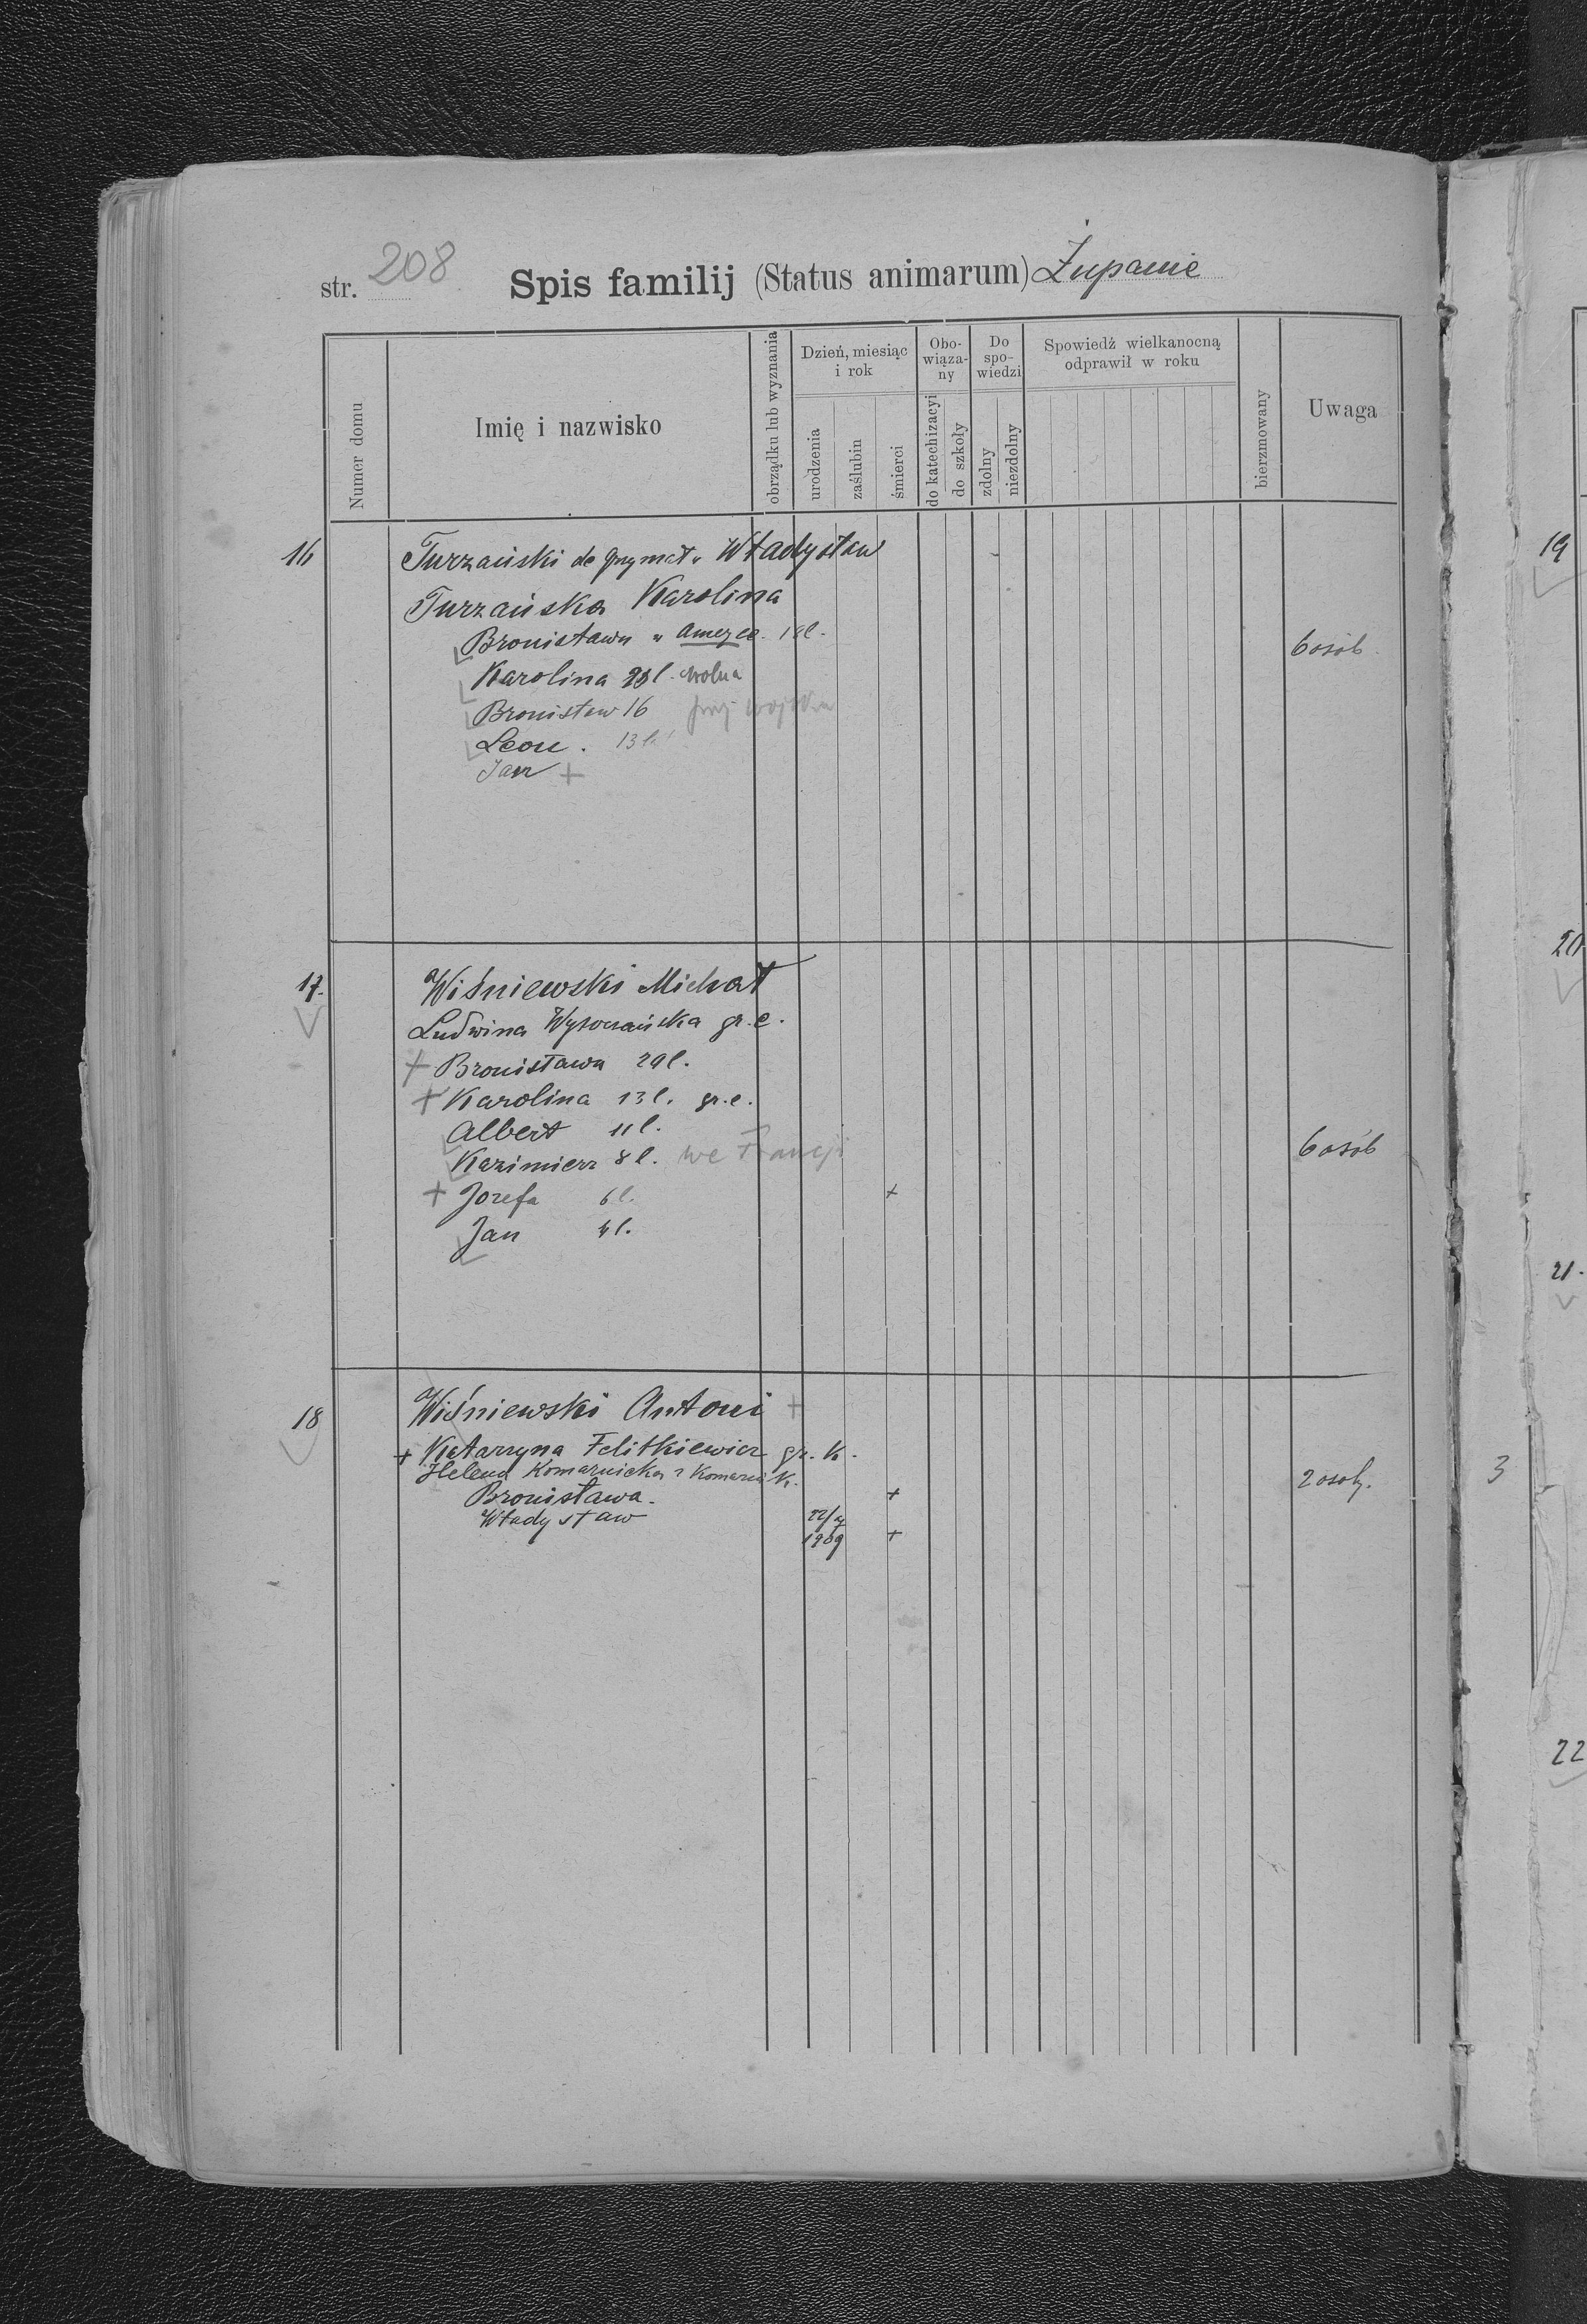 str. 208 Spis familij (Status animarum) Żupanie
Numer domu
Imię i nazwisko
obrządku lub wyznania
Dzień, miesiąc i rok
urodzenia
zaślubin
śmierci
Obo-
wiąza-
ny
do katechizacyi
do szkoły
Do
spo-
wiedzi
zdolny
niezdolny
Spowiedź wielkanocną
odprawił w roku
bierzmowany
Uwaga
16 Turzański de Władysław
Turzańska Karolina
Bronisława w 18l.
6 osób.
Karolina 23 l. wolna
Bronisław 16 przy wojsku
Leon. 13 l.
Jan +
17. Wiśniewski Michał
Ludwina Wysoczańska gr.c.
+ Bronisława 29 l.
+ Karolina 13 l. gr.c.
Albert 11 l.
Kazimierz 8 l. we Francji
6 osób
+ Jozefa 6 l. +
Jan 4 l.
18 Wiśniewski Antoni +
+ Katarzyna Felitkiewicz gr. k.
Helena Komarnicka z Komarnik.
2 osoby.
Bronisława. +
Władysław 22/4
1909 +
19
20
21.
3
22